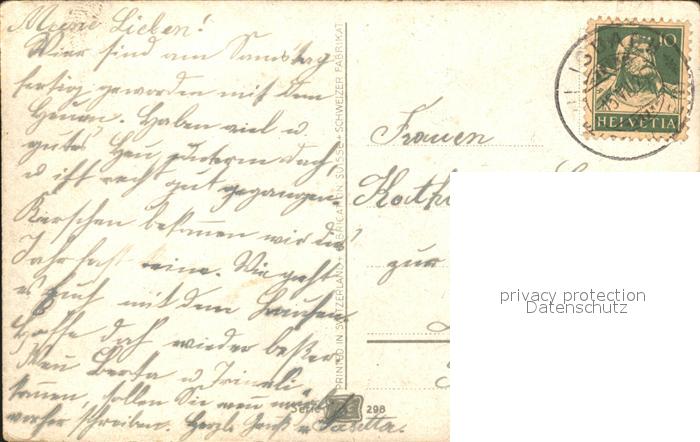 Meine Lieben!
Wier sind am Samstag
fertig geworden mit dem
Heuen. Haben viel u.
gutes Heu, unterm dach,
u ist recht gut gegangen.
Kirschen bekomen wir dies
Jahr fast keine. Wie geht
es Euch mit dem
Hoffe doch wieder beßer.
Wen Berta u Trineli
komen, sollen Sie
vorher schreiben. Herzl. Gruß
Frauen
zur
10
HELVETIA
PRINTED IN SWITZERLAND + FABRICATION SUISSE + SCHWEIZER FABRIKAT
Serie 298
privacy protection
Datenschutz